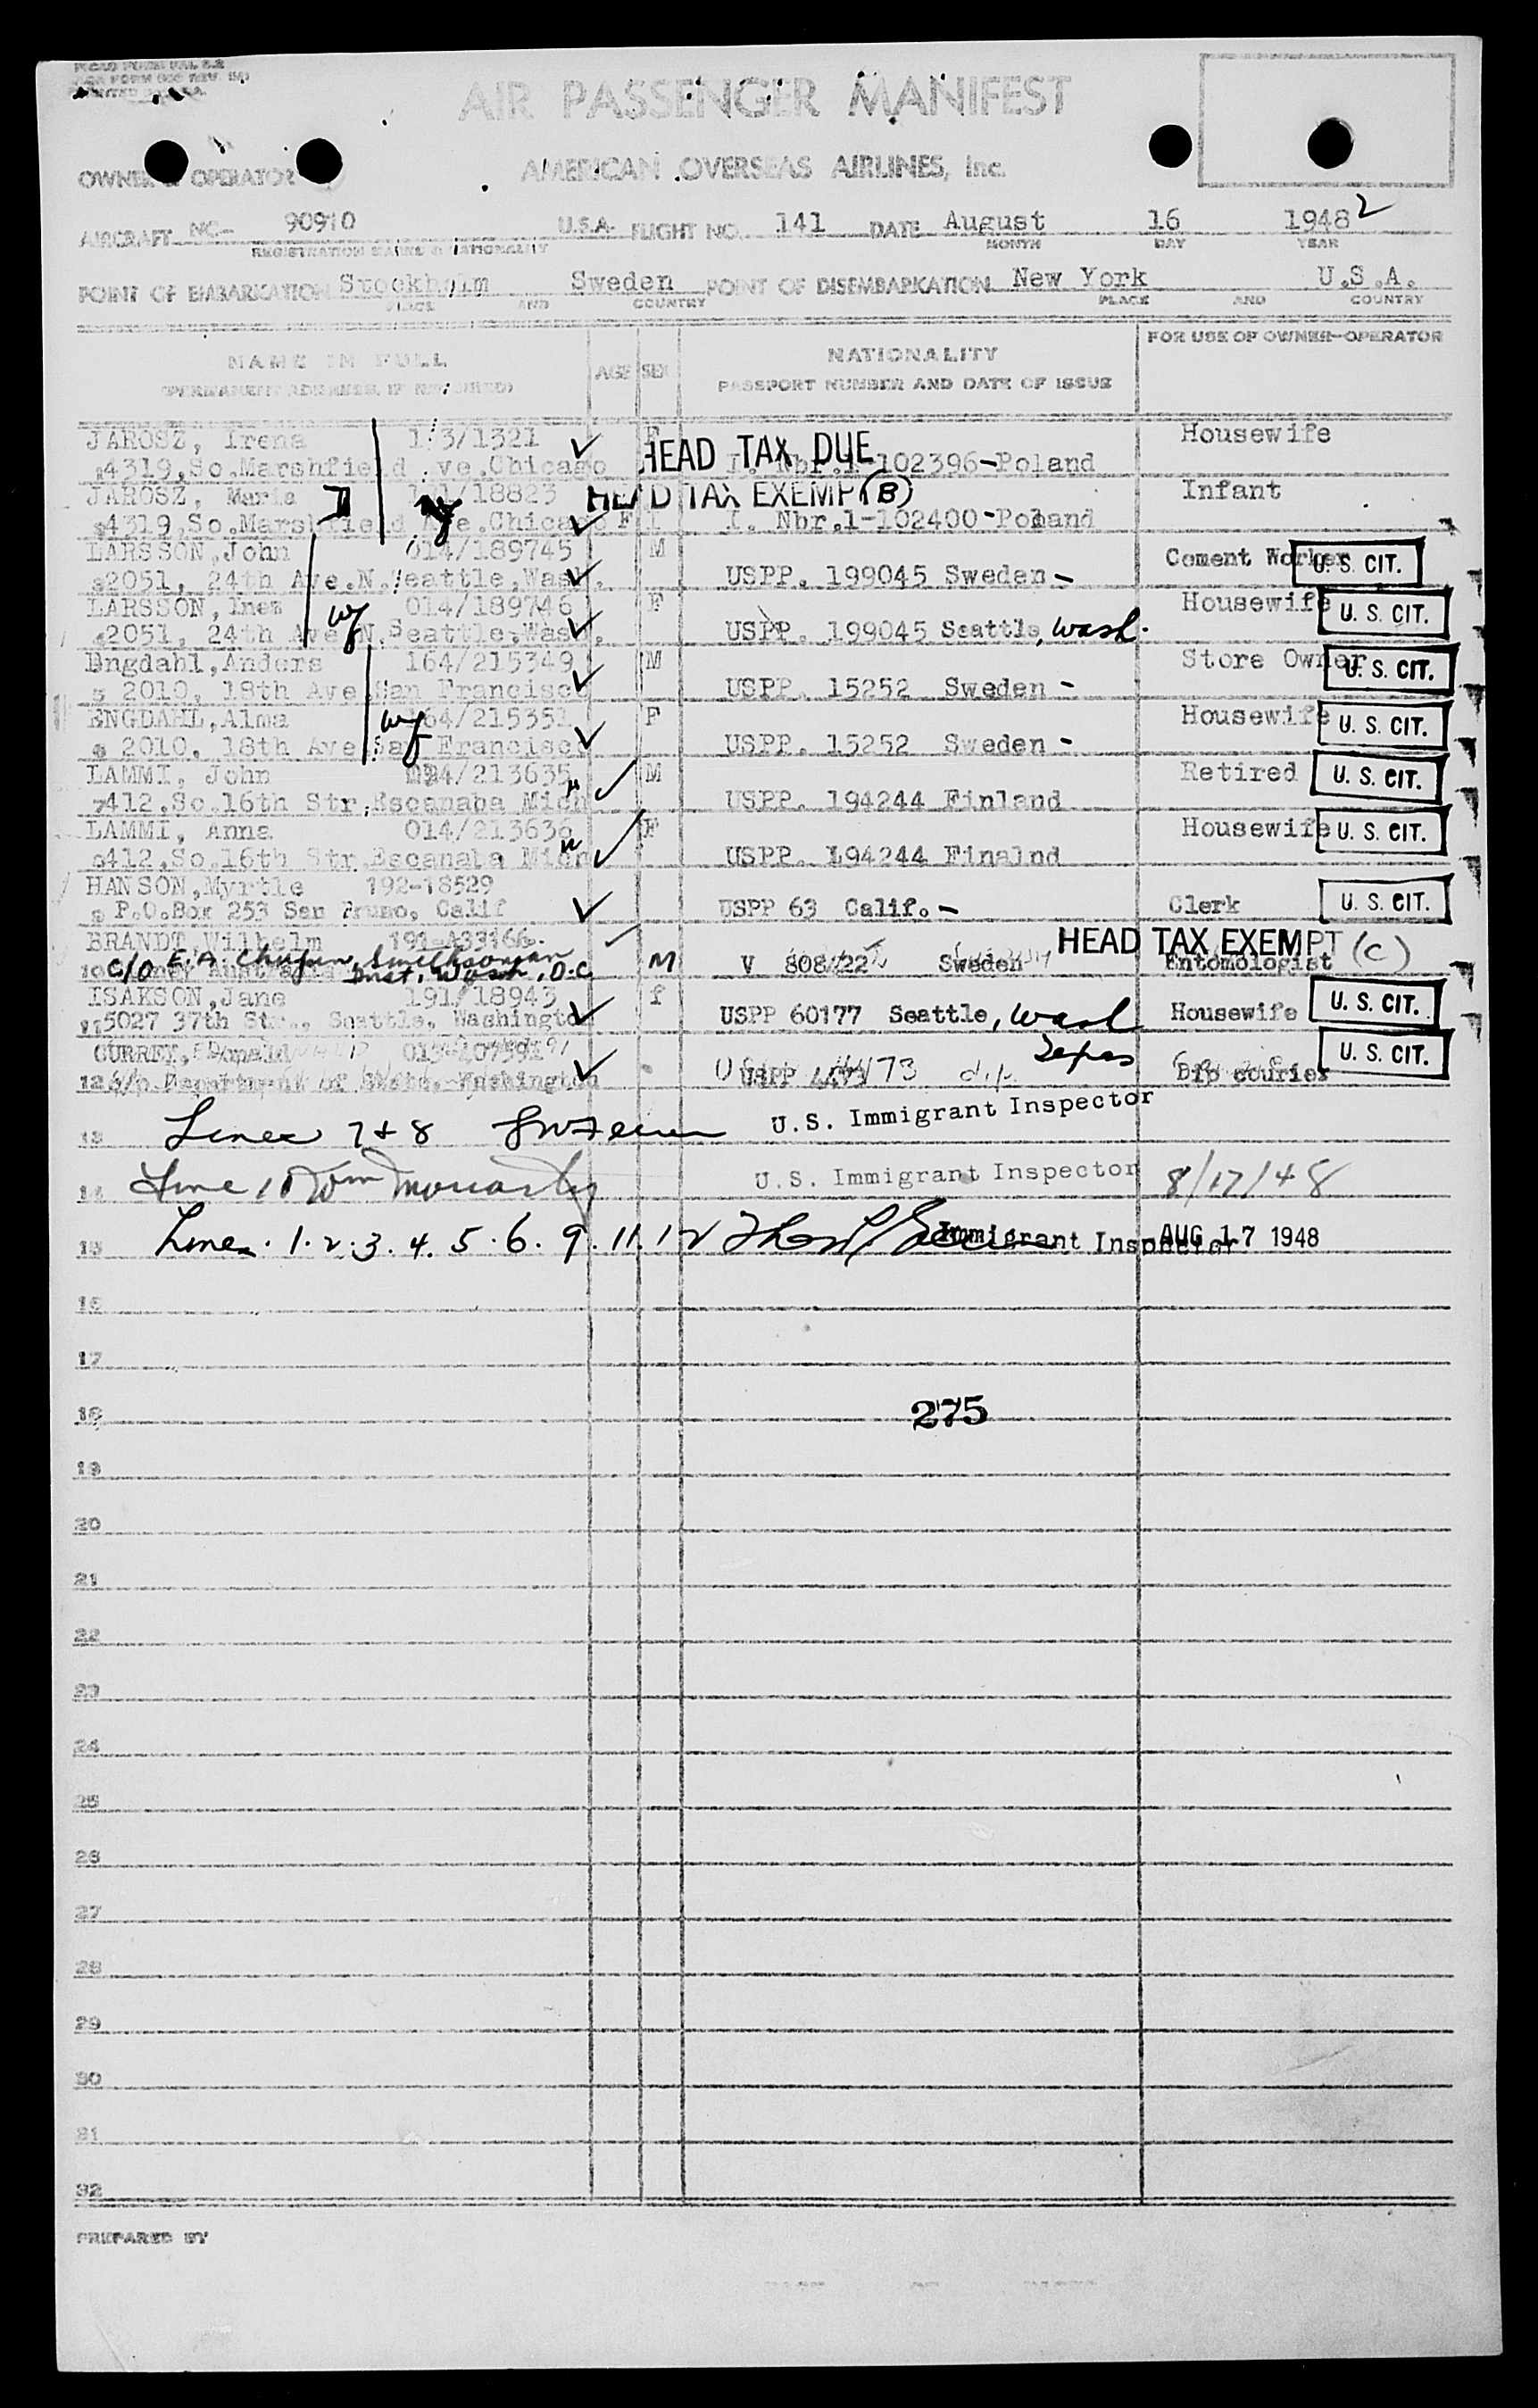 AIR PASSENGER MANIFEST
OWNER & OPERATOR AMERICAN OVERSEAS AIRLINES, Inc.
AIRCRAFT NC- 90910 U.S.A. FLIGHT NO. 141 DATE August 16 1948 2
REGISTRATION MARKS & NATIONALITY MONTH DAY YEAR
POINT OF EMBARKATION Stockholm Sweden POINT OF DISEMBARKATION New York U.S.A.
PLACE AND COUNTRY PLACE AND COUNTRY
NAME IN FULL AGE SEX NATIONALITY FOR USE OF OWNER-OPERATOR
(PERMANENT ADDRESS, IF REQUIRED) PASSPORT NUMBER AND DATE OF ISSUE
JAROSZ, Irena F HEAD TAX DUE Housewife
4319, So. Marshfield Ave. Chicago I. Nbr. 1-102396-Poland
JAROSZ, Maria /18823 HEAD TAX EXEMPT (B) Infant
4319, So. Marshfield Ave. Chicago F I. Nbr. 1-102400-Poland
LARSSON, John 014/189745 M Cement Worker U. S. CIT.
2051, 24th Ave. N. Seattle, Wash. USPP. 199045 Sweden -
LARSSON, Inez wf 014/189746 F Housewife U. S. CIT.
2051, 24th Ave N. Seattle, Wash. USPP. 199045 Seattle, Wash.
Engdahl, Anders 164/215349 M Store Owner U. S. CIT.
2010, 18th Ave San Francisco USPP. 15252 Sweden -
ENGDAHL, Alma wf 164/215351 F Housewife U. S. CIT.
2010, 18th Ave San Francisco USPP. 15252 Sweden -
LAMMI, John 014/213635 M Retired U. S. CIT.
7 412, So. 16th Str, Escanaba Mich USPP. 194244 Finland
LAMMI, Anna 014/213636 F Housewife U. S. CIT.
412, So. 16th Str Escanaba Mich USPP. 194244 Finalnd
HANSON, Myrtle 192-18529
P.O. Box 253 San Bruno, Calif USPP 63 Calif. - Clerk U. S. CIT.
BRANDT, Wilhelm 191-A33166 HEAD TAX EXEMPT (C)
10 c/o E.A. Chapin, Smithsonian Inst, Wash, D.C M V 808/22 Sweden Entomologist
ISAKSON, Jane 191/18943 f
5027 37th Str., Seattle, Washington USPP 60177 Seattle, Wash Housewife U. S. CIT.
CURREY, Donald Texas U. S. CIT.
12 c/o Department of State, Washington USPP 4473 dip Dip courier
13 Lines 7 & 8 U.S. Immigrant Inspector
14 Line 10 Wm Moriarty U.S. Immigrant Inspector 8/17/48
15 Lines. 1. 2. 3. 4. 5. 6. 9. 11. 12 Immigrant Inspector AUG 17 1948
16
17
18 275
19
20
21
22
23
24
25
26
27
28
29
30
31
32
PREPARED BY